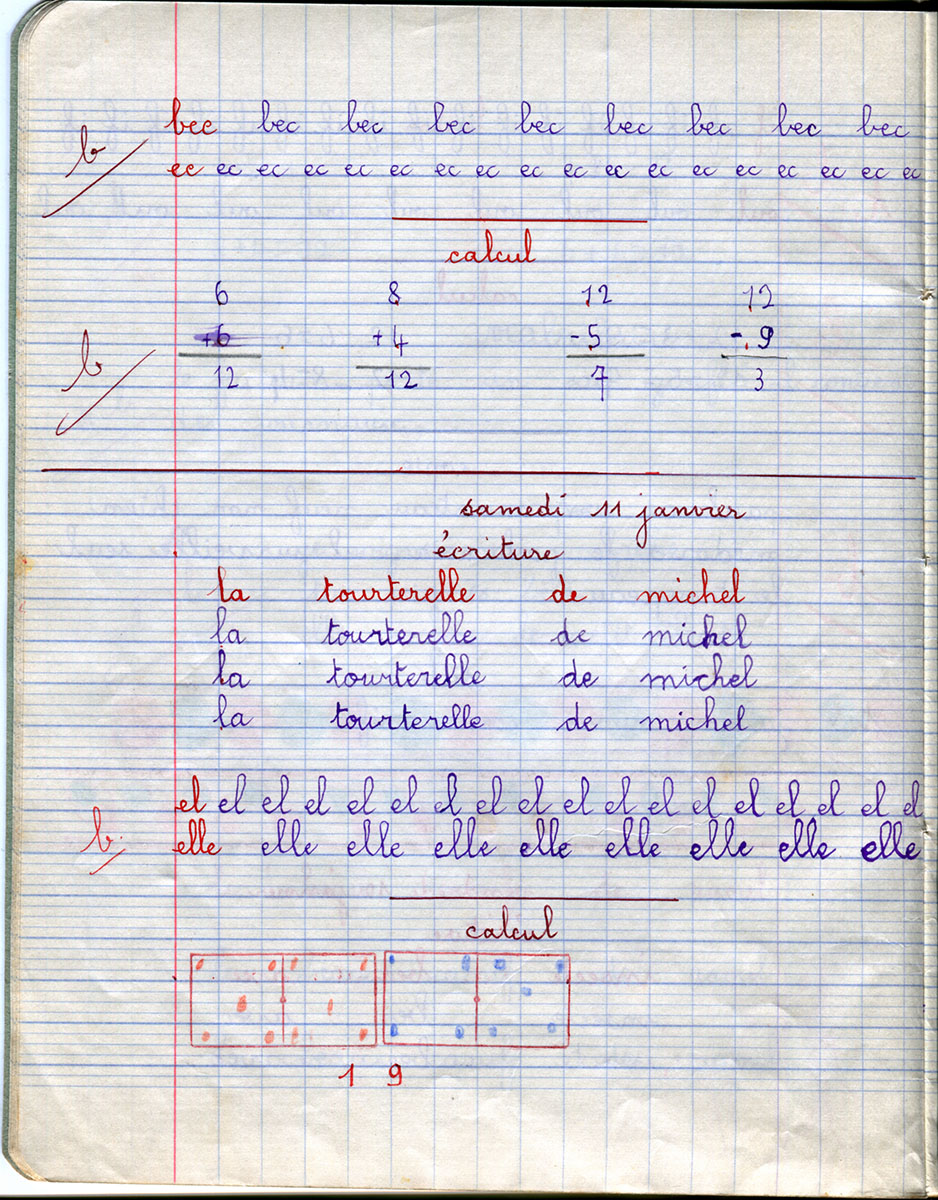 bec bec bec bec bec bec bec bec bec
b
ec ec ec ec ec ec ec ec ec ec ec ec ec ec ec ec ec ec
calcul
6 8 12 12
+6 +4 -5 -9
b
12 12 7 3
samedi 11 janvier
écriture
la tourterelle de michel
la tourterelle de michel
la tourterelle de michel
la tourterelle de michel
el el el el el el el el el el el el el el el el el el
b.
elle elle elle elle elle elle elle elle elle
calcul
1 9